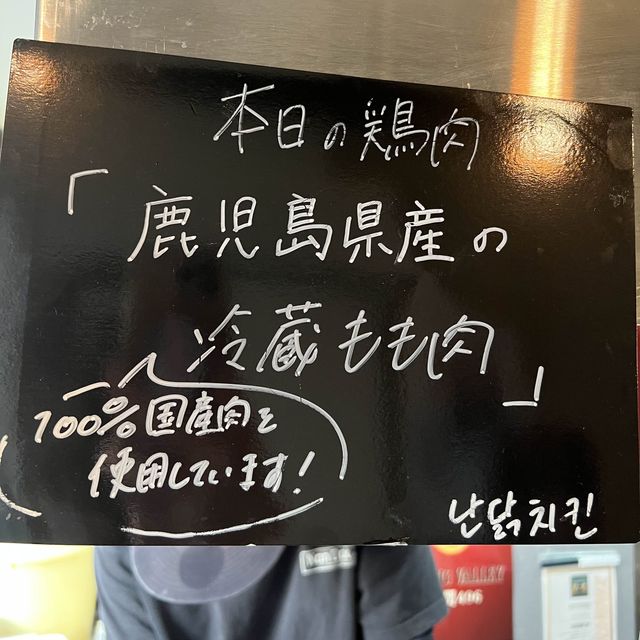 本日の鶏肉
「鹿児島県産の
冷蔵もも肉」
100%国産肉を
使用しています!
난닭チキン
VALLEY
406